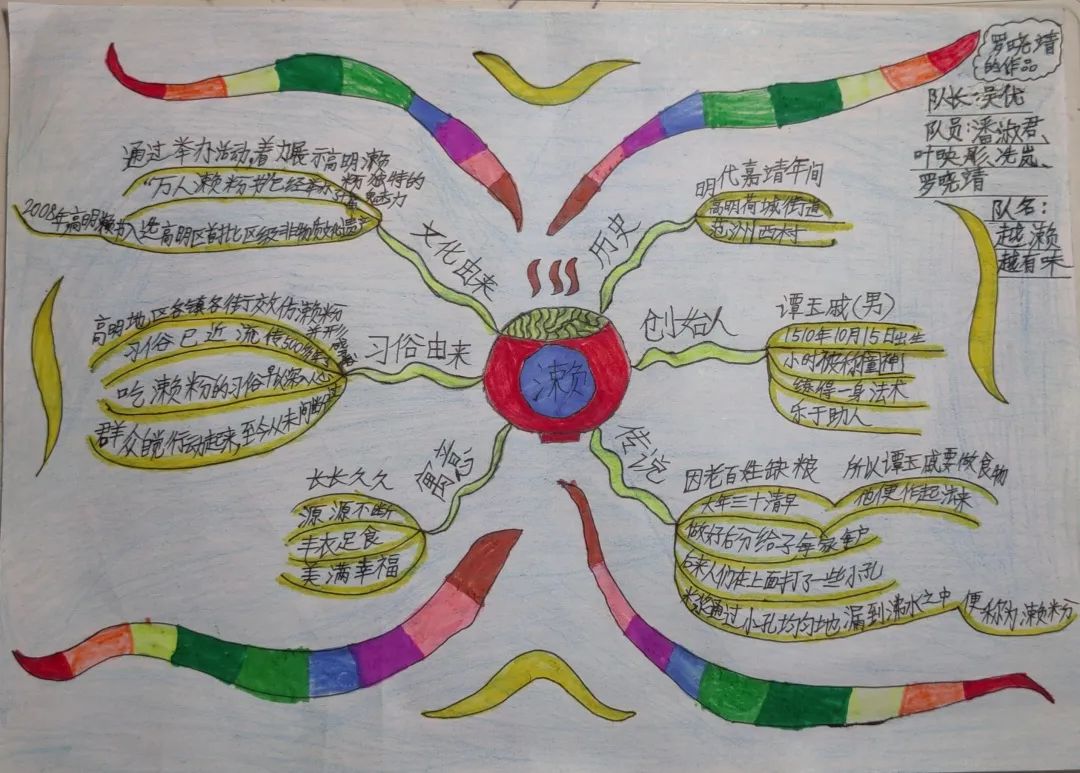 罗晓靖
的作品
队长:吴优
队员:潘淑君、
叶映彤、冼岚、
罗晓靖
队名:
越濑
越有味
通过举办活动,着力展示高明濑
粉独特的
魅力
"万人濑粉节"已经举办
2008年高明濑粉节入选高明区首批区级非物质文化遗产
文化由来
明代嘉靖年间
高明荷城街道
范洲西村
历史
濑
高明地区各镇各街效仿濑粉
习俗已近流传500多年
并形
吃濑粉的习俗早已深入人心
群众自觉行动起来,至今从未间断过
习俗由来
创始人
谭玉戚(男)
1510年10月15日出生
小时被称童神
练得一身法术
乐于助人
寓意
长长久久
源源不断
丰衣足食
美满幸福
传说
因老百姓缺粮
所以谭玉戚要做食物
他便作起法来
大年三十清早
做好后分给了每家每户
后来人们在上面打了一些小孔
米浆通过小孔均匀地漏到沸水之中
便称为濑粉